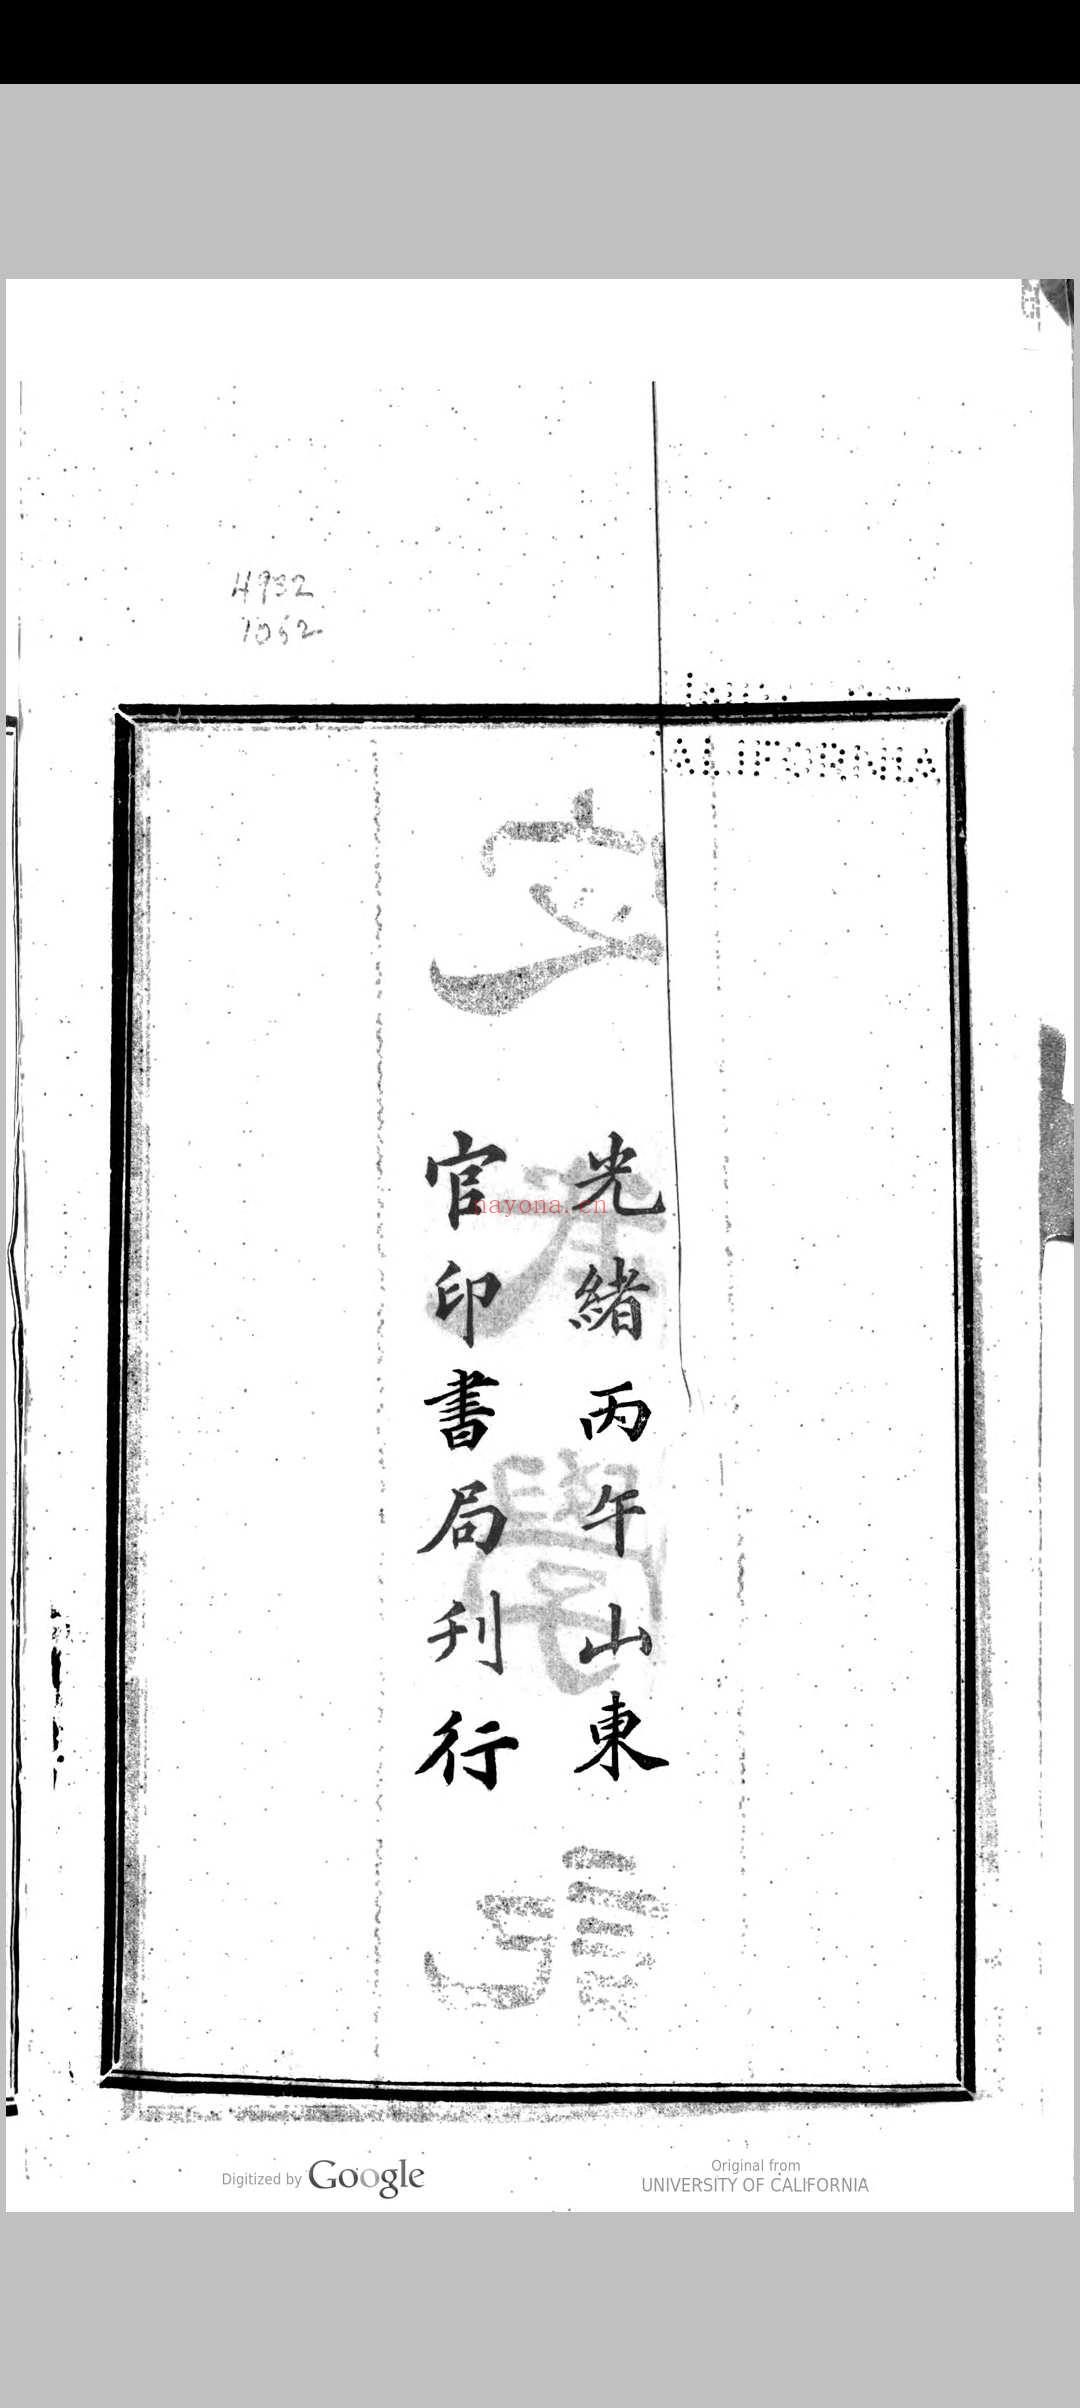 4932
1052
CALIFORNIA
光緒丙午山東
官印書局刋行
nayona.cn
Digitized by Google
Original from
UNIVERSITY OF CALIFORNIA